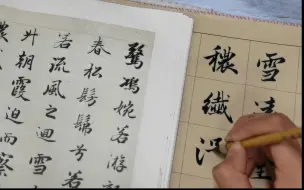 雪
穠纖
驚鴻婉若游
春松髣髴兮若
若流風之迴雪
升朝霞迫而察